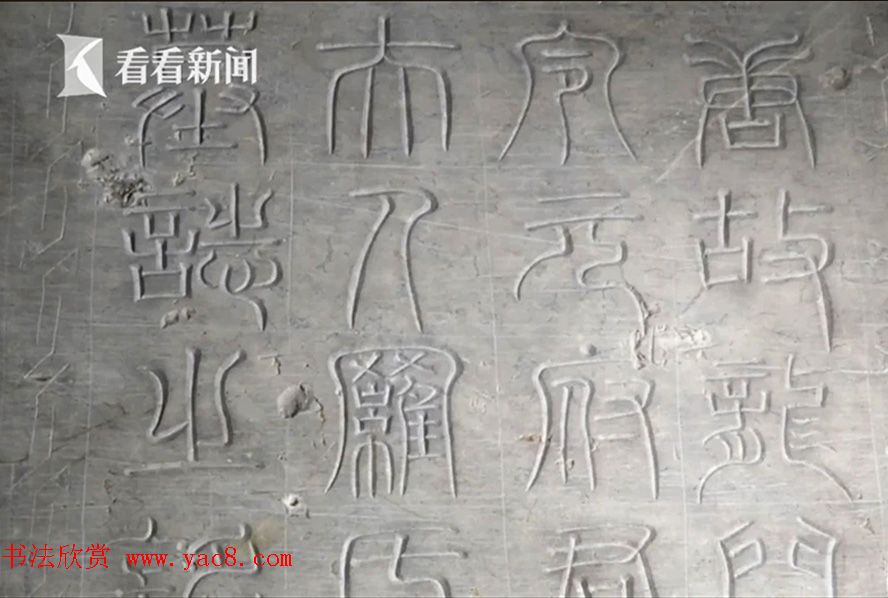 看看新闻
唐故龍門
令元府君
夫人羅氏
墓誌之銘
书法欣赏 www.yac8.com